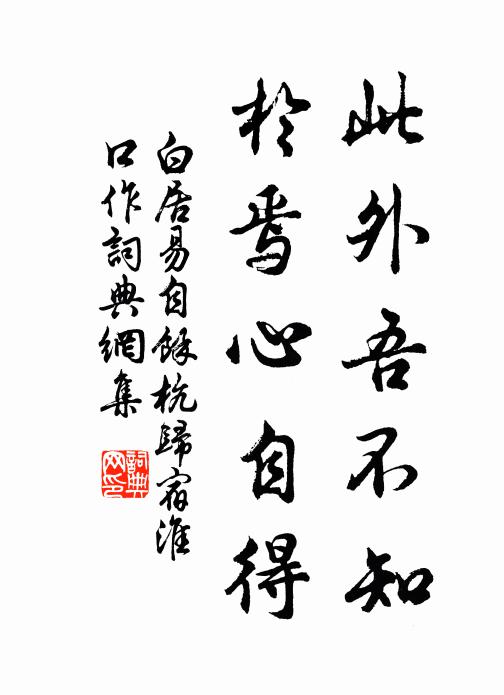 此外吾不知
於焉心自得
白居易自餘杭歸宿淮
口作詞典網集
詞典
网印